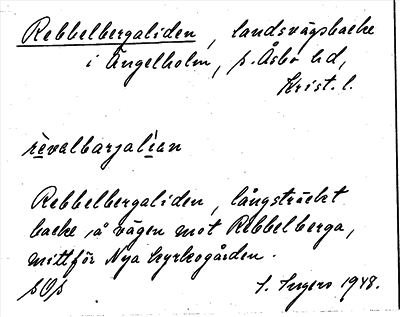 Rebbelbergaliden, landsvägsbacke
i Ängelholm, s. Åsbo hd,
Krist. l.
rèvalbarjalìan
Rebbelbergaliden, långsträckt
backe å vägen mot Rebbelberga,
mittför Nya kyrkogården.
S. Ingers 1948.